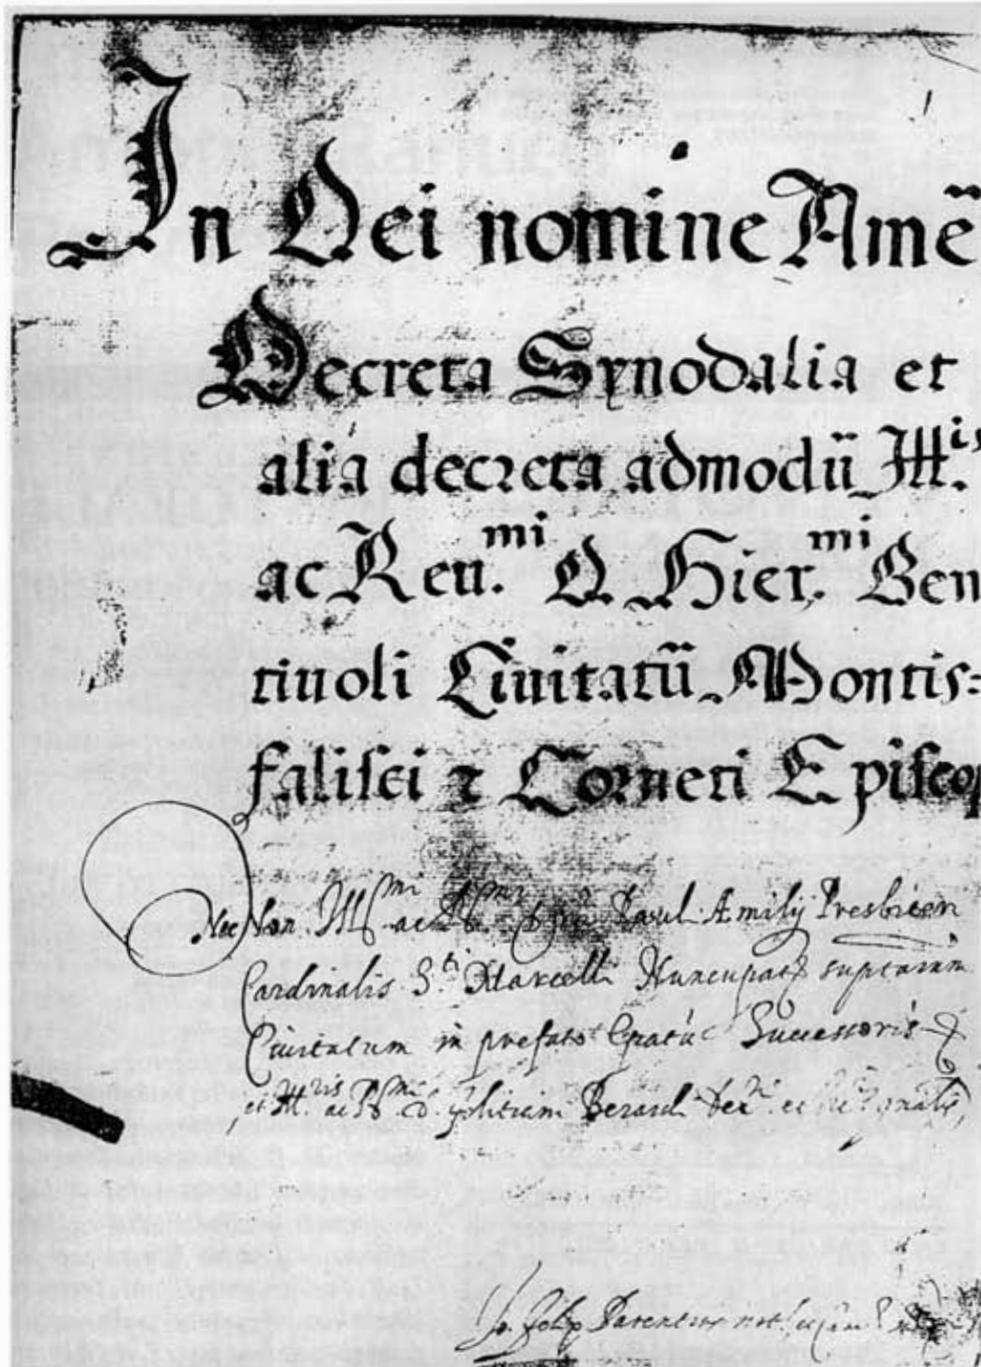 In Dei nomine Amẽ
Decreta Synodalia et
alia decreta admodũ Ill.is
ac Reu.mi D. Hier.mi Ben
tiuoli Ciuitatũ Montis=
falisci & Corneti Episcop
Nec Non Ill.mi ac Paul. Æmilij Presbiteri
Cardinalis S.ti Marcelli Nuncupat
Ciuitatum in prefato Successoris &
et Ill.ris ac Berard et
Jo. Felix Parentius not